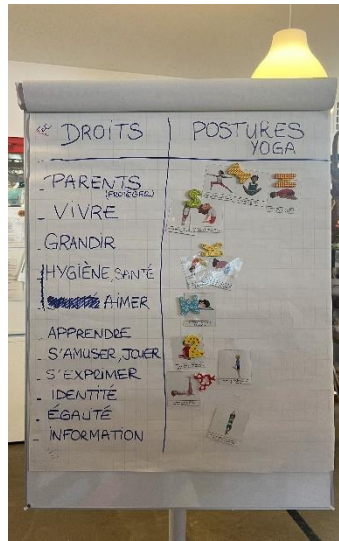 DROITS
POSTURES
YOGA
- PARENTS
(PROTÉGER)
- VIVRE
- GRANDIR
HYGIÈNE, SANTÉ
- AIMER
- APPRENDRE
- S'AMUSER, JOUER
- S'EXPRIMER
- IDENTITÉ
- ÉGALITÉ
- INFORMATION